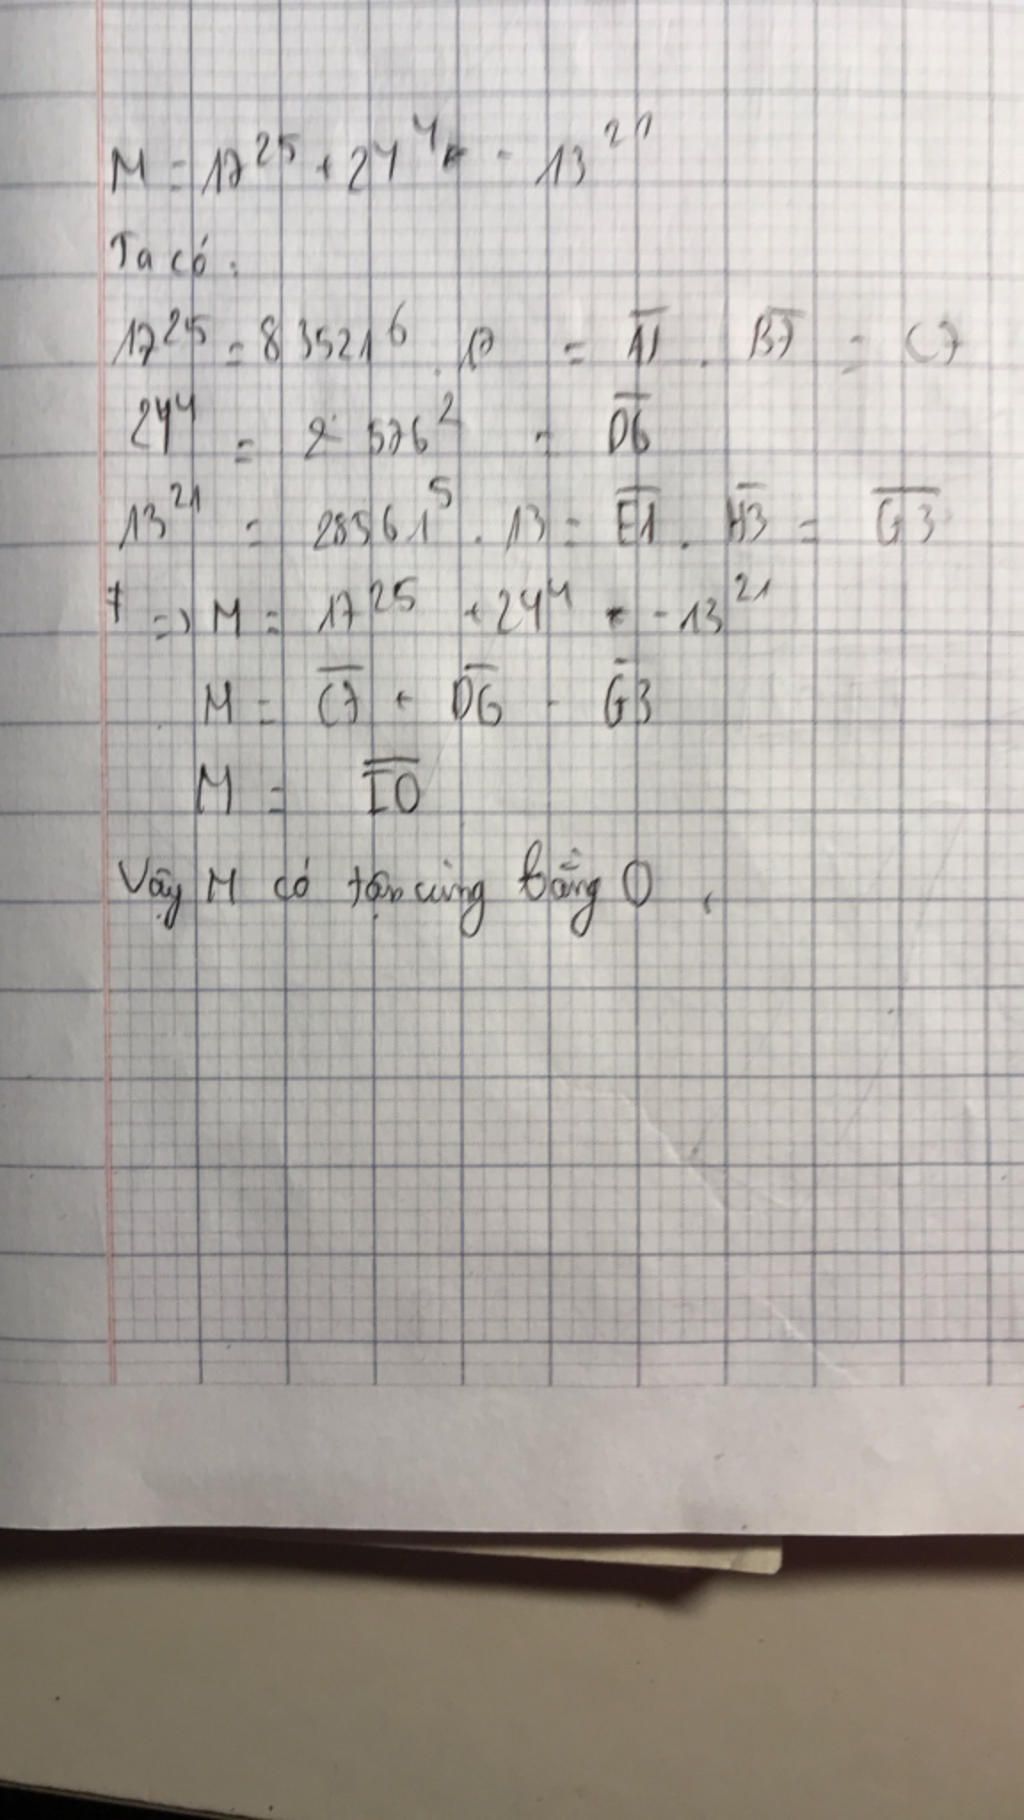 M = 17^25 + 24^4 - 13^21
Ta có:
17^25 = 83521^6 . 17 = A1 . B7 = C7
24^4 = 576^2 = D6
13^21 = 28561^5 . 13 = E1 . H3 = G3
=> M = 17^25 + 24^4 - 13^21
M = C7 + D6 - G3
M = I0
Vậy M có tận cùng bằng 0.